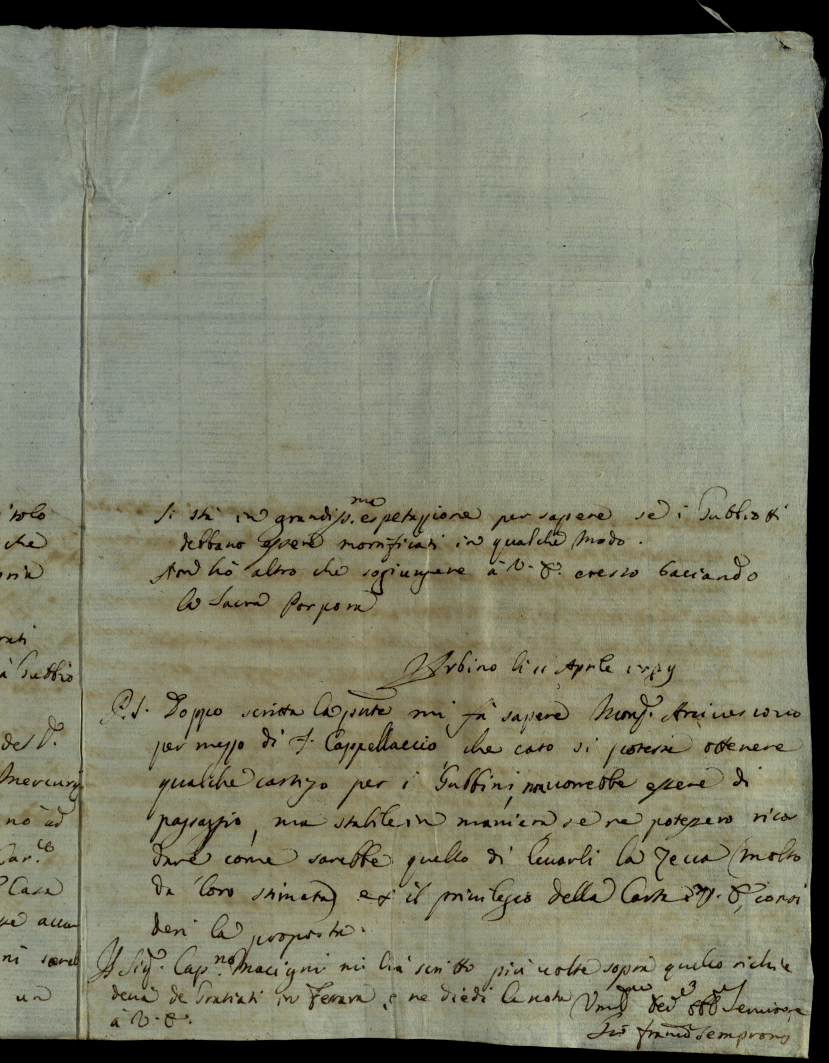 Si stà in grandiss.ma espetazione per sapere se i Gubbiotti
debbano essere mortificati in qualche modo.
Non hò altro che sogiungere à V. E. e resto baciando
la Sacra Porpora
Urbino li 11 Aprile
P.S. Doppo scritta la pnte mi fà sapere Mons.r Arcivescovo
per mezzo di Cappellaccio che caso si potesse ottenere
qualche castigo per i Gubbini, non vorrebbe essere di
passaggio, ma stabile in maniera se ne potessero ricor
dare come sarebbe quello di levarli la Zecca (molto
da loro stimata) et il privilegio della Carta V. E. consi
deri la proposta.
Il Sig.r Cap.no Macigni mi hà scritto più volte sopra quello richie
deva de Graziati in Ferrara, e ne diedi la nota
à V. E.
Um.mo Dev.mo Obb.mo Servitore
Gio Fran.co Semproni
titolo
che
à Gubbio
del D.
Mercurij
no ad
Car.le
Casa
un